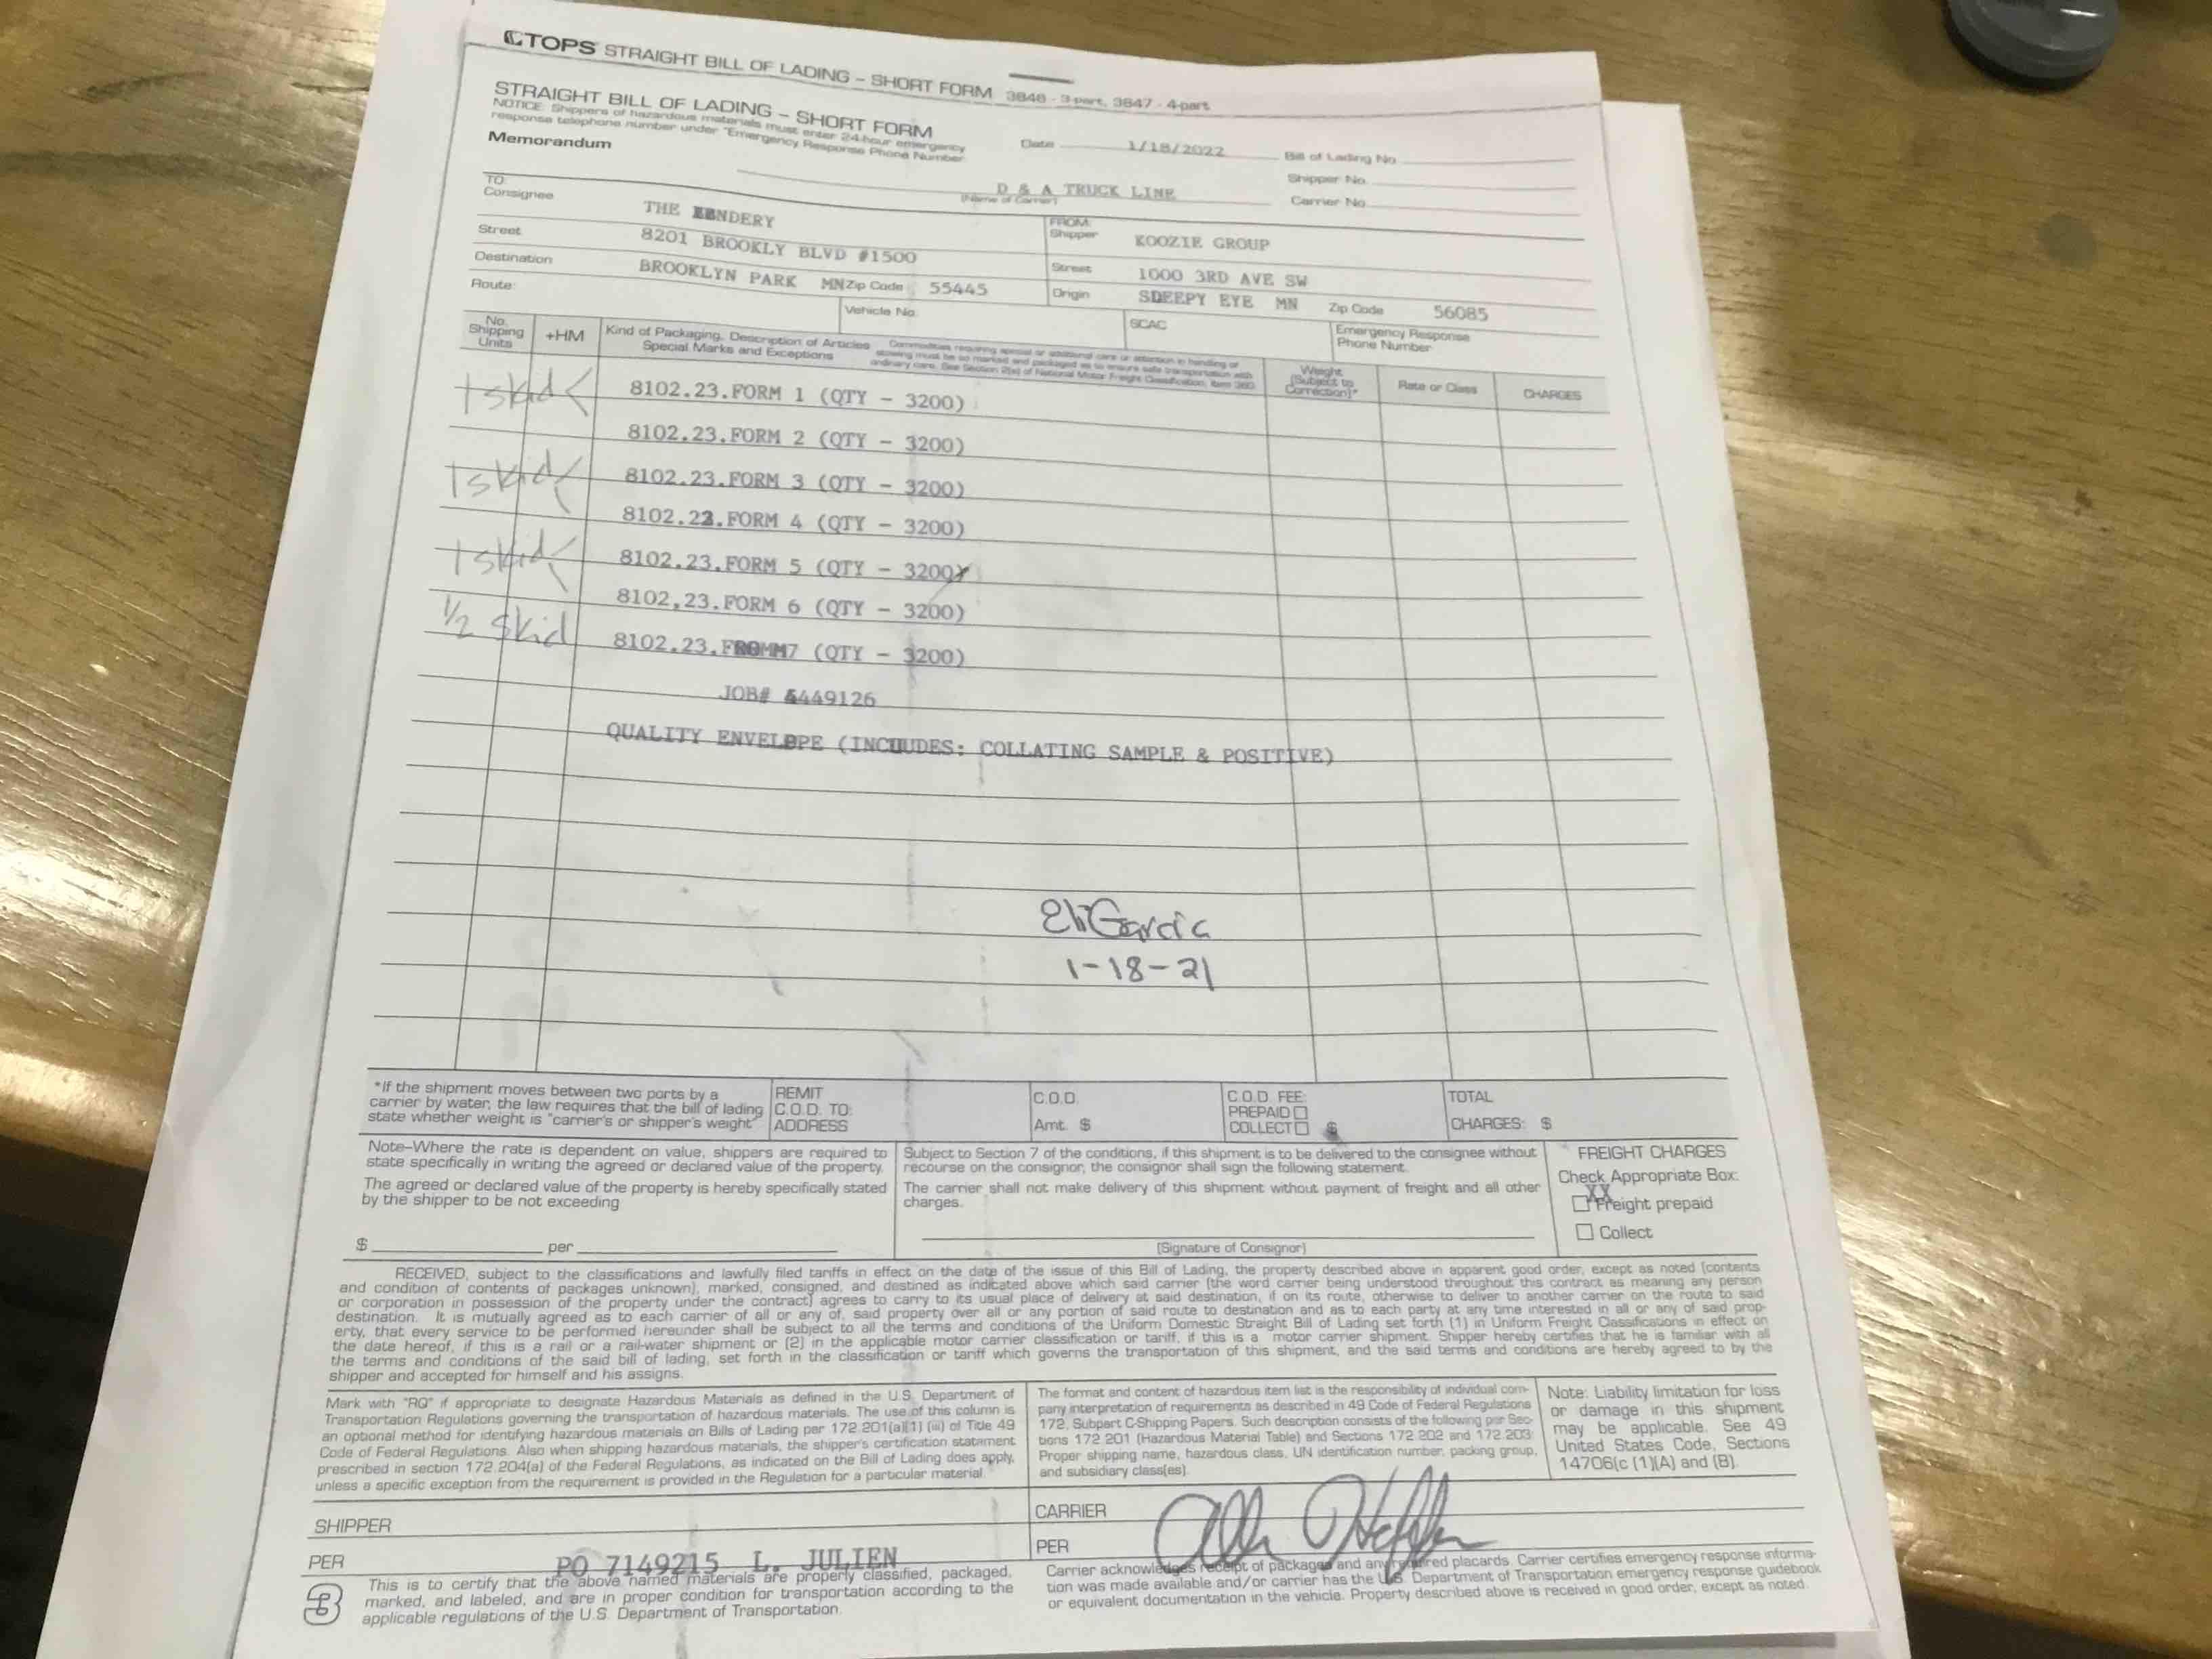 TOPS STRAIGHT BILL OF LADING – SHORT FORM 3846 - 3-part, 3847 - 4-part
STRAIGHT BILL OF LADING – SHORT FORM
NOTICE: Shippers of hazardous materials must enter 24-hour emergency
response telephone number under "Emergency Response Phone Number
Memorandum
Date 1/18/2022
Bill of Lading No.
Shipper No.
Carrier No.
D & A TRUCK LINE
(Name of Carrier)
TO:
Consignee THE BINDERY
Street 8201 BROOKLY BLVD #1500
Destination BROOKLYN PARK MN Zip Code 55445
FROM:
Shipper KOOZIE GROUP
Street 1000 3RD AVE SW
Origin SLEEPY EYE MN Zip Code 56085
Route:
Vehicle No.
SCAC
Emergency Response
Phone Number
No.
Shipping
Units
+HM
Kind of Packaging, Description of Articles
Special Marks and Exceptions
Commodities requiring special or additional care or attention in handling or
stowing must be so marked and packaged as to ensure safe transportation with
ordinary care. See Section 2(e) of National Motor Freight Classification, Item 360
Weight
(Subject to
Correction)*
Rate or Class
CHARGES
1 skid 8102.23.FORM 1 (QTY - 3200)
8102.23.FORM 2 (QTY - 3200)
1 skid 8102.23.FORM 3 (QTY - 3200)
8102.23.FORM 4 (QTY - 3200)
1 skid 8102.23.FORM 5 (QTY - 3200)
8102,23.FORM 6 (QTY - 3200)
1/2 skid 8102.23.FORM 7 (QTY - 3200)
JOB# 4449126
QUALITY ENVELOPE (INCLUDES: COLLATING SAMPLE & POSITIVE)
Eli Garcia
1-18-21
*If the shipment moves between two ports by a
carrier by water, the law requires that the bill of lading
state whether weight is "carrier's or shipper's weight"
REMIT
C.O.D. TO:
ADDRESS
C.O.D.
Amt. $
C.O.D. FEE:
PREPAID
COLLECT $
TOTAL
CHARGES: $
Note–Where the rate is dependent on value, shippers are required to
state specifically in writing the agreed or declared value of the property.
The agreed or declared value of the property is hereby specifically stated
by the shipper to be not exceeding
$ per
Subject to Section 7 of the conditions, if this shipment is to be delivered to the consignee without
recourse on the consignor, the consignor shall sign the following statement.
The carrier shall not make delivery of this shipment without payment of freight and all other
charges.
(Signature of Consignor)
FREIGHT CHARGES
Check Appropriate Box:
XX
Freight prepaid
Collect
RECEIVED, subject to the classifications and lawfully filed tariffs in effect on the date of the issue of this Bill of Lading, the property described above in apparent good order, except as noted (contents
and condition of contents of packages unknown), marked, consigned, and destined as indicated above which said carrier (the word carrier being understood throughout this contract as meaning any person
or corporation in possession of the property under the contract) agrees to carry to its usual place of delivery at said destination, if on its route, otherwise to deliver to another carrier on the route to said
destination. It is mutually agreed as to each carrier of all or any of, said property over all or any portion of said route to destination and as to each party at any time interested in all or any of said prop-
erty, that every service to be performed hereunder shall be subject to all the terms and conditions of the Uniform Domestic Straight Bill of Lading set forth (1) in Uniform Freight Classifications in effect on
the date hereof, if this is a rail or a rail-water shipment or (2) in the applicable motor carrier classification or tariff, if this is a motor carrier shipment. Shipper hereby certifies that he is familiar with all
the terms and conditions of the said bill of lading, set forth in the classification or tariff which governs the transportation of this shipment, and the said terms and conditions are hereby agreed to by the
shipper and accepted for himself and his assigns.
Mark with "RQ" if appropriate to designate Hazardous Materials as defined in the U.S. Department of
Transportation Regulations governing the transportation of hazardous materials. The use of this column is
an optional method for identifying hazardous materials on Bills of Lading per 172.201(a)(1) (iii) of Title 49
Code of Federal Regulations. Also when shipping hazardous materials, the shipper's certification statement
prescribed in section 172.204(a) of the Federal Regulations, as indicated on the Bill of Lading does apply,
unless a specific exception from the requirement is provided in the Regulation for a particular material.
The format and content of hazardous item list is the responsibility of individual com-
pany interpretation of requirements as described in 49 Code of Federal Regulations
172, Subpart C-Shipping Papers. Such description consists of the following per Sec-
tions 172.201 (Hazardous Material Table) and Sections 172.202 and 172.203:
Proper shipping name, hazardous class, UN identification number, packing group,
and subsidiary class(es).
Note: Liability limitation for loss
or damage in this shipment
may be applicable. See 49
United States Code, Sections
14706(c (1)(A) and (B).
SHIPPER
PER PO 7149215 L. JULIEN
CARRIER
PER
3
This is to certify that the above named materials are properly classified, packaged,
marked, and labeled, and are in proper condition for transportation according to the
applicable regulations of the U.S. Department of Transportation.
Carrier acknowledges receipt of packages and any required placards. Carrier certifies emergency response informa-
tion was made available and/or carrier has the U.S. Department of Transportation emergency response guidebook
or equivalent documentation in the vehicle. Property described above is received in good order, except as noted.